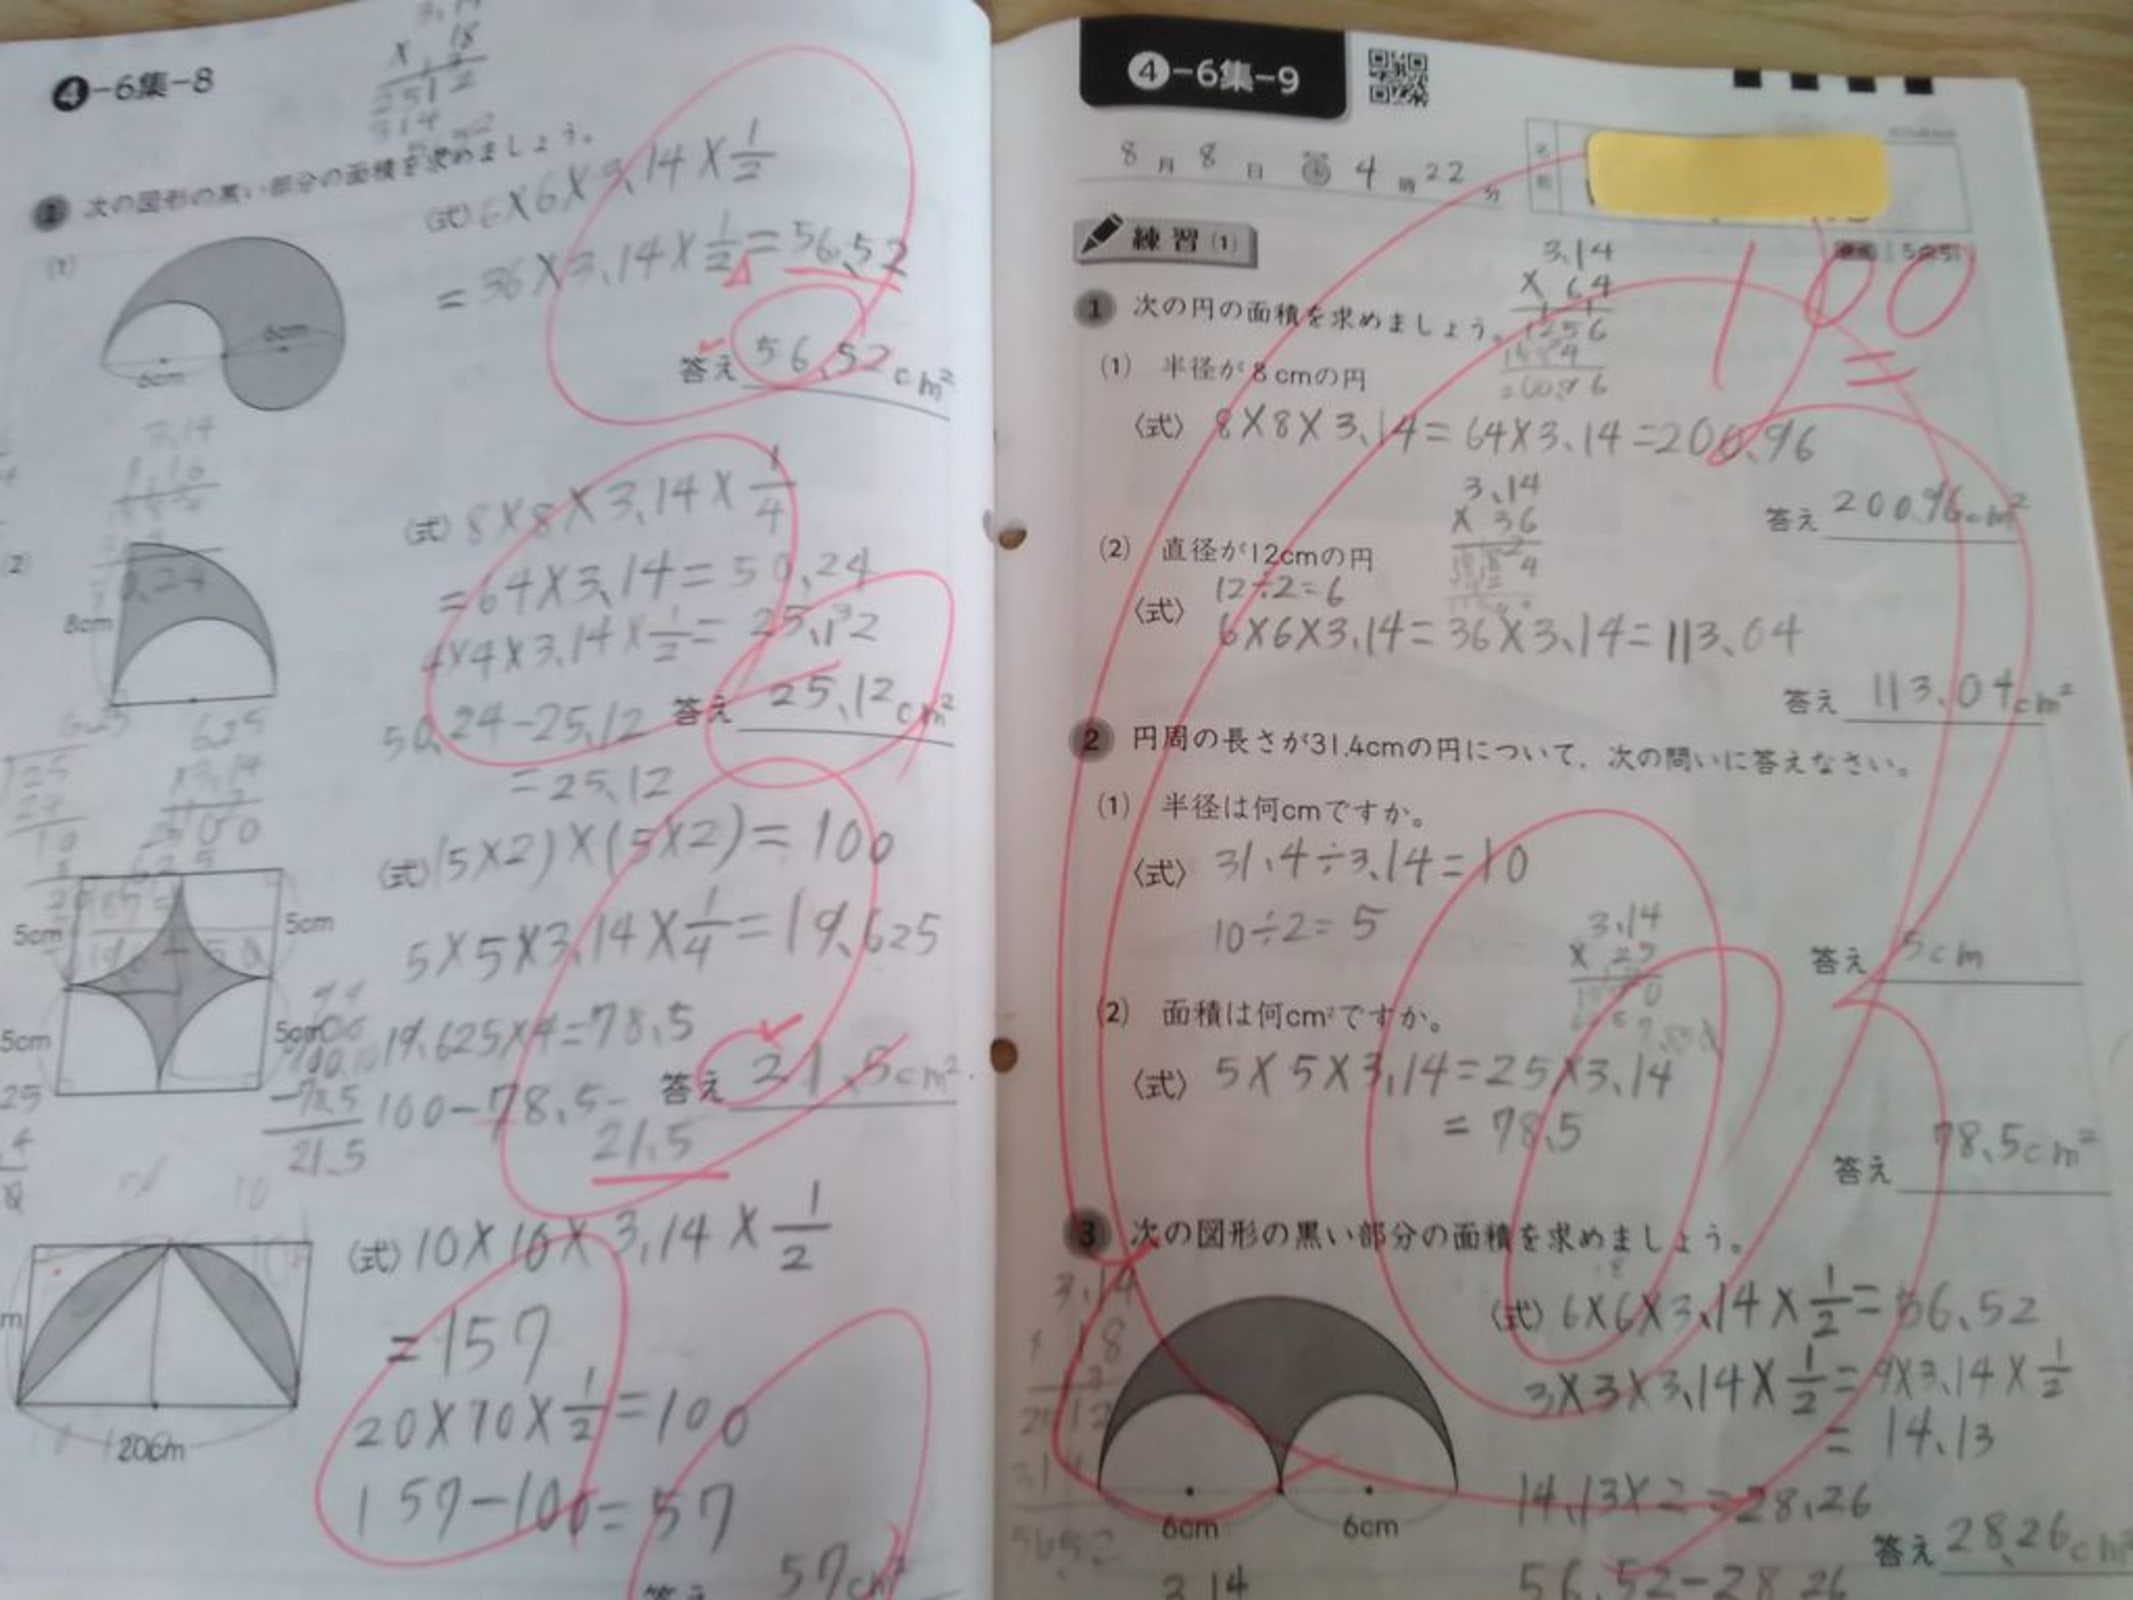 4-6集-8
3.14
× 18
2512
314
次の図形の黒い部分の面積を求めましょう。
(1)
6cm
6cm
(式) 6×6×3.14×1/2
= 36×3.14×1/2=56.52
答え 56.52cm²
(2)
8cm
(式) 8×8×3.14×1/4
=64×3.14=50.24
4×4×3.14×1/2=25.12
50.24-25.12
=25.12
答え 25.12cm²
5cm
5cm
5cm
5cm
(式) (5×2)×(5×2)=100
5×5×3.14×1/4=19.625
19.625×4=78.5
100-78.5=
21.5
-78.5
21.5
答え 21.5cm²
20cm
(式) 10×10×3.14×1/2
=157
20×10×1/2=100
157-100=57
答え 57cm²
4-6集-9
8月8日 4時22分
100
練習(1)
1 次の円の面積を求めましょう。
3.14
× 64
1256
(1) 半径が8cmの円
〈式〉 8×8×3.14=64×3.14=200.96
答え 200.96cm²
(2) 直径が12cmの円
3.14
× 36
12÷2=6
〈式〉 6×6×3.14=36×3.14=113.04
答え 113.04cm²
2 円周の長さが31.4cmの円について、次の問いに答えなさい。
(1) 半径は何cmですか。
〈式〉 31.4÷3.14=10
10÷2=5
答え 5cm
3.14
× 25
(2) 面積は何cm²ですか。
〈式〉 5×5×3.14=25×3.14
= 78.5
答え 78.5cm²
3 次の図形の黒い部分の面積を求めましょう。
3.14
18
2512
6cm
6cm
3.14
〈式〉 6×6×3.14×1/2=56.52
3×3×3.14×1/2=9×3.14×1/2
= 14.13
14.13×2=28.26
56.52-28.26
答え 28.26cm²